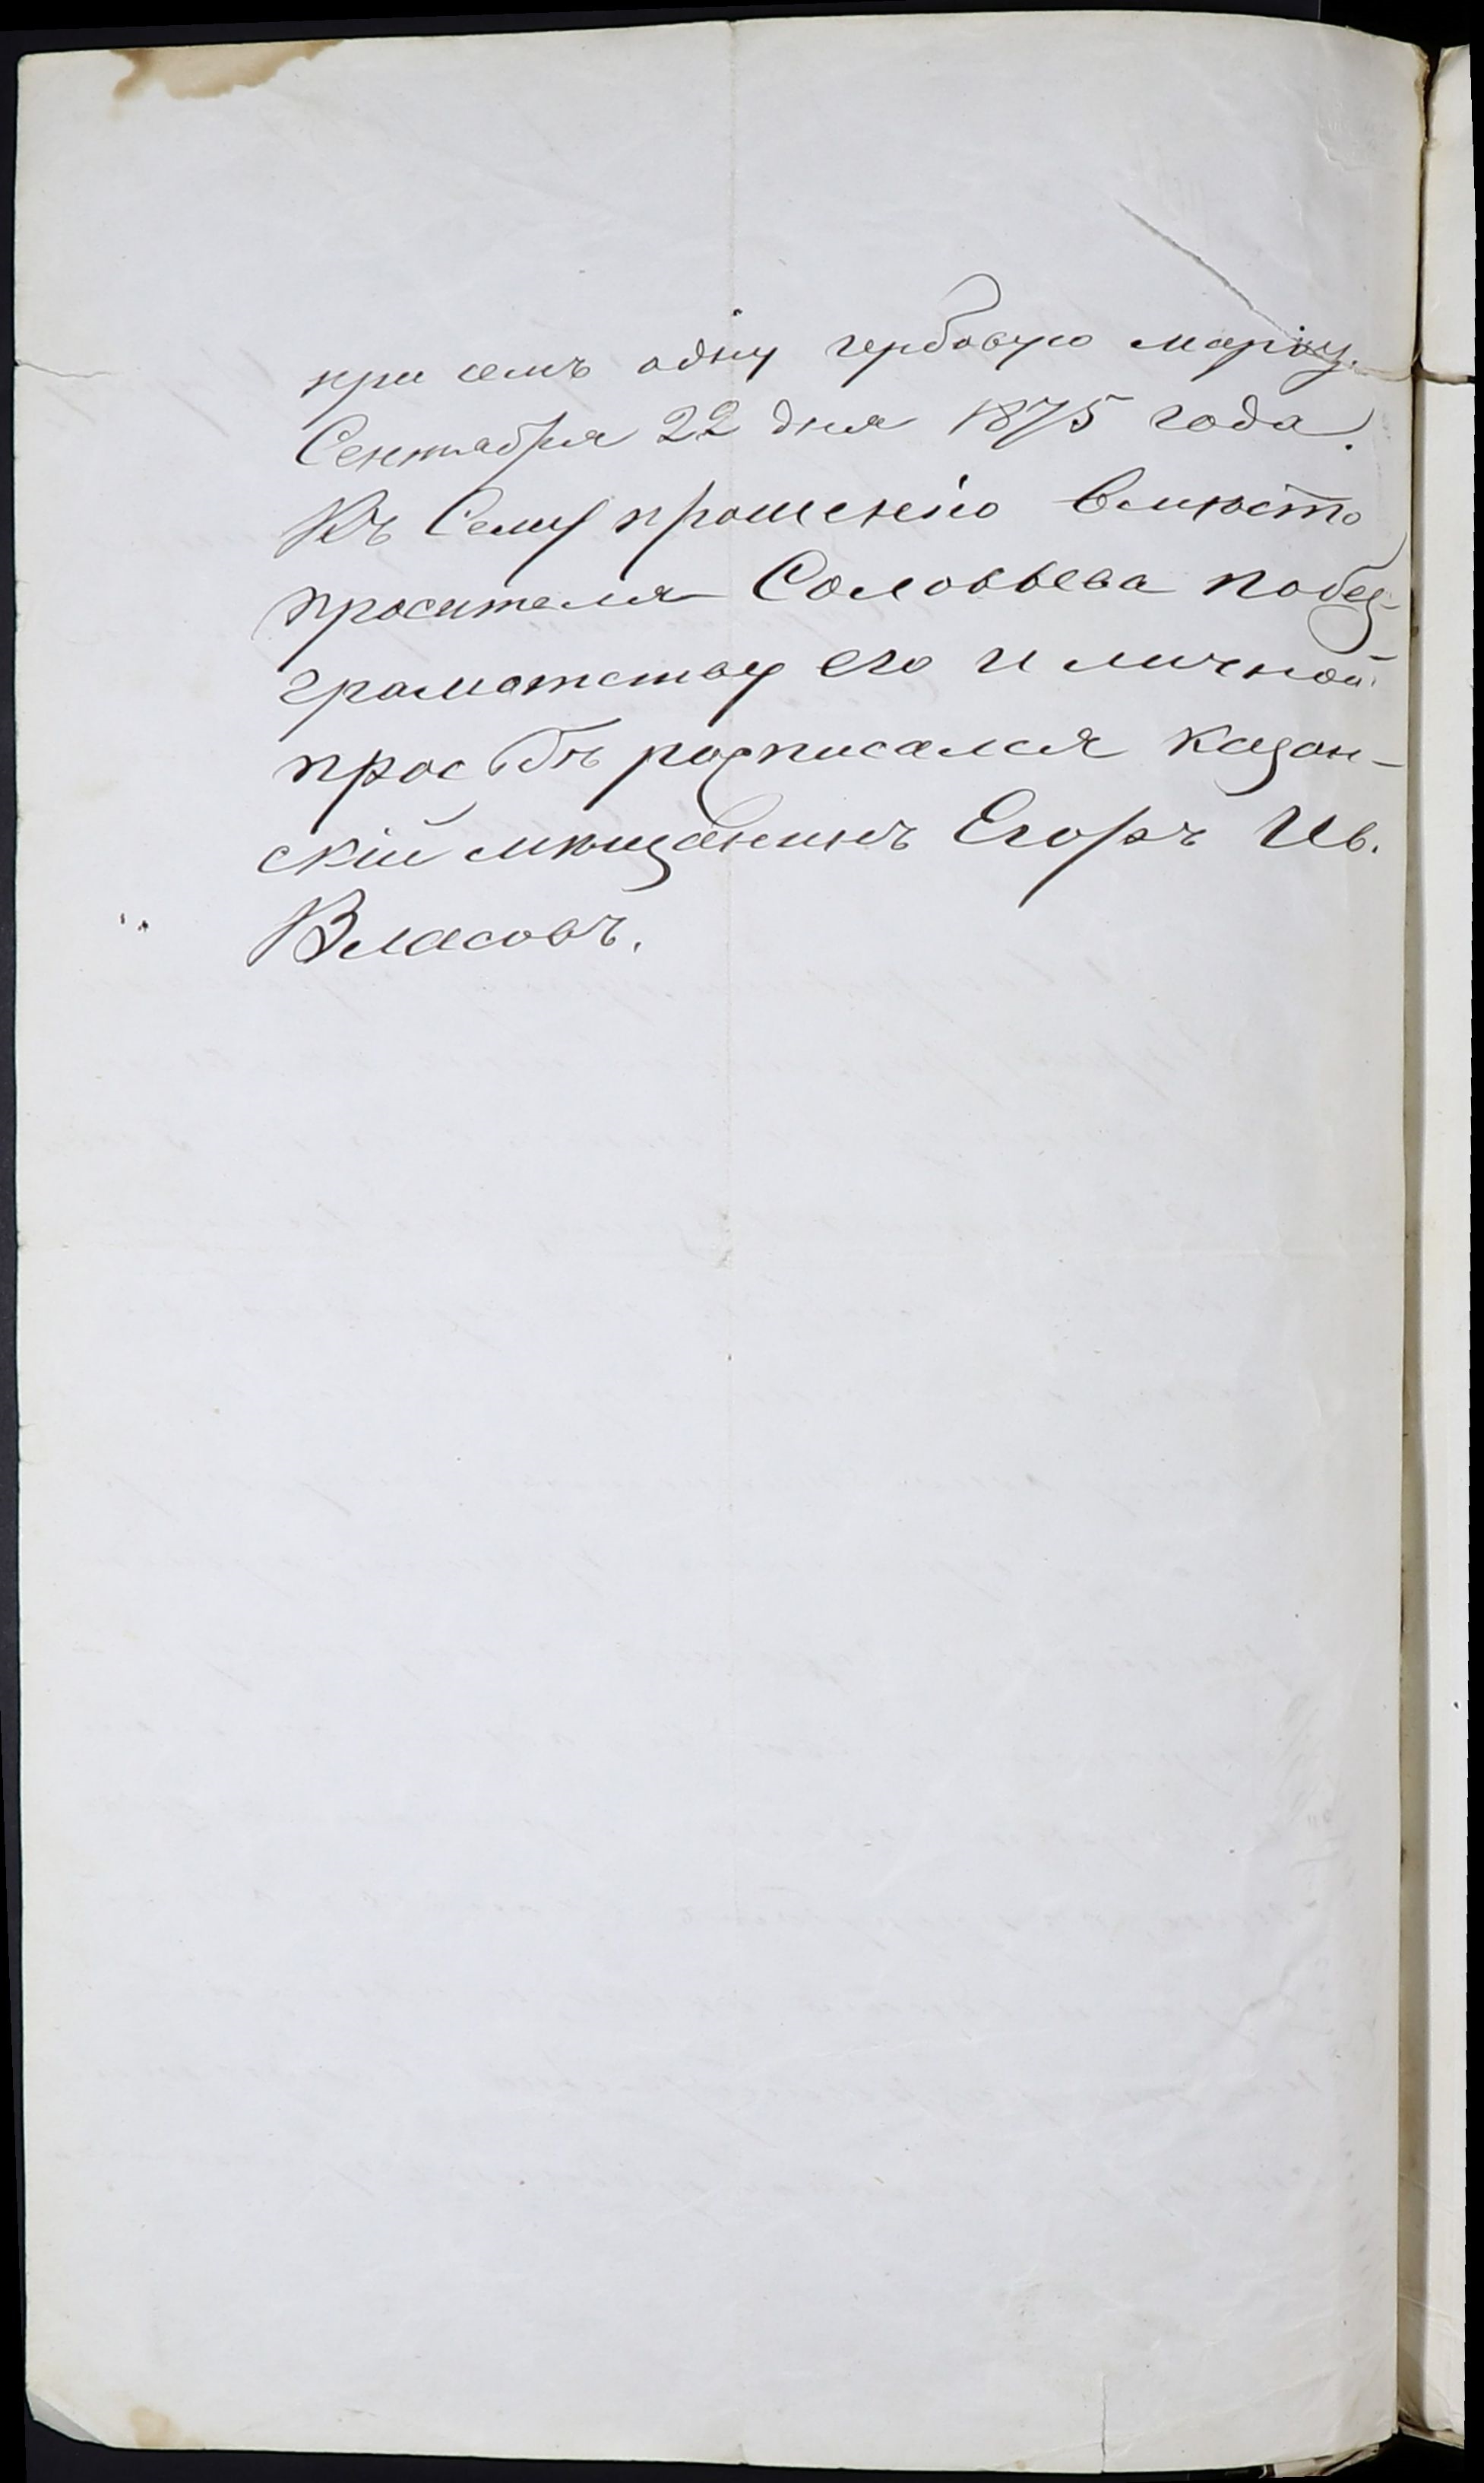 при семъ одну гербовую марку.
Сентября 22 дня 1875 года.
Къ Сему прошенію вмѣсто
просителя Соловьева побез-
граматству его и личной
прозьбѣ росписался казан-
скій мѣщанинъ Егоръ Ив.
Власовъ.